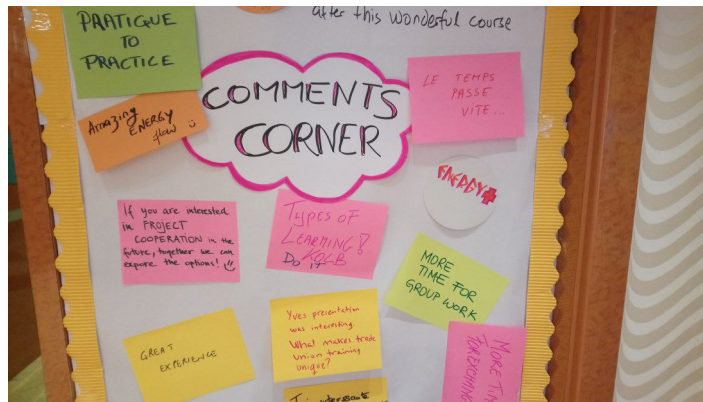 after this wonderful course
PRATIQUE
TO
PRACTICE
COMMENTS
CORNER
LE TEMPS
PASSE
VITE...
Amazing
ENERGY
flow
ENERGY+
If you are interested
in PROJECT
COOPERATION in the
future, together we can
expore the options!
TYPES OF
LEARNING!
KOLB
Do it
MORE
TIME FOR
GROUP WORK
GREAT
EXPERIENCE
Yves presentation
was interesting.
What makes trade
union training
unique?
MORE TIME
FOR